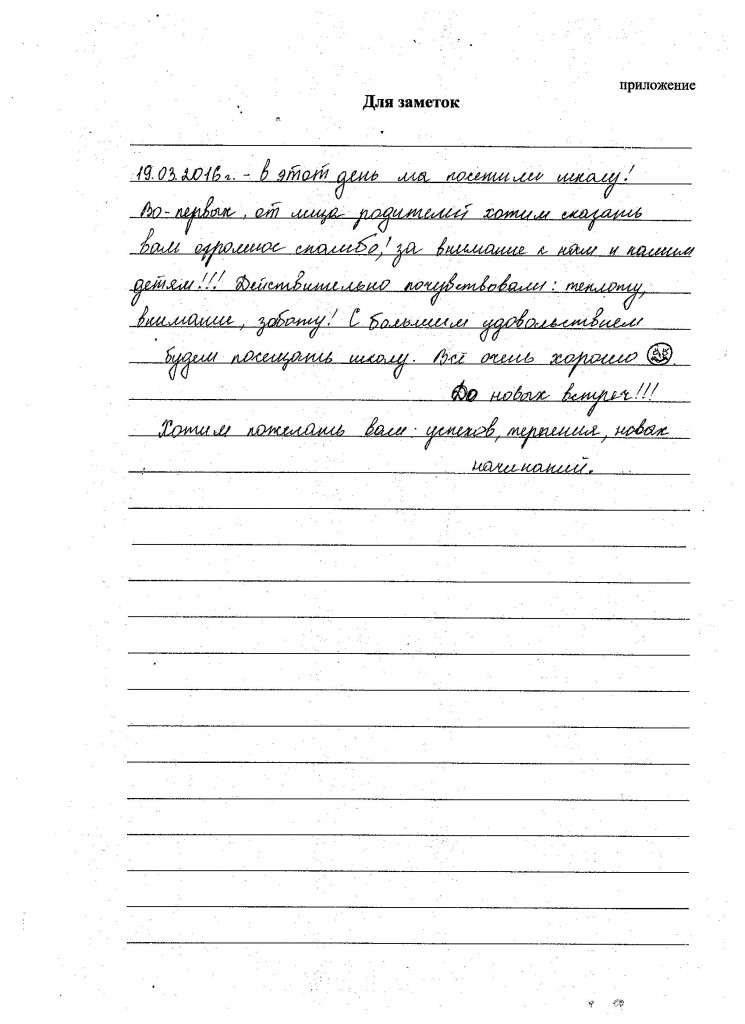 приложение
Для заметок
19.03.2016г. - в этот день мы посетили школу!
Во-первых, от лица родителей хотим сказать
вам огромное спасибо,! за внимание к нам и нашим
детям!!! Действительно почувствовали: теплоту,
внимание, заботу! С большим удовольствием
будем посещать школу. Всё очень хорошо
До новых встреч!!!
Хотим пожелать вам успехов, терпения, новых
начинаний.